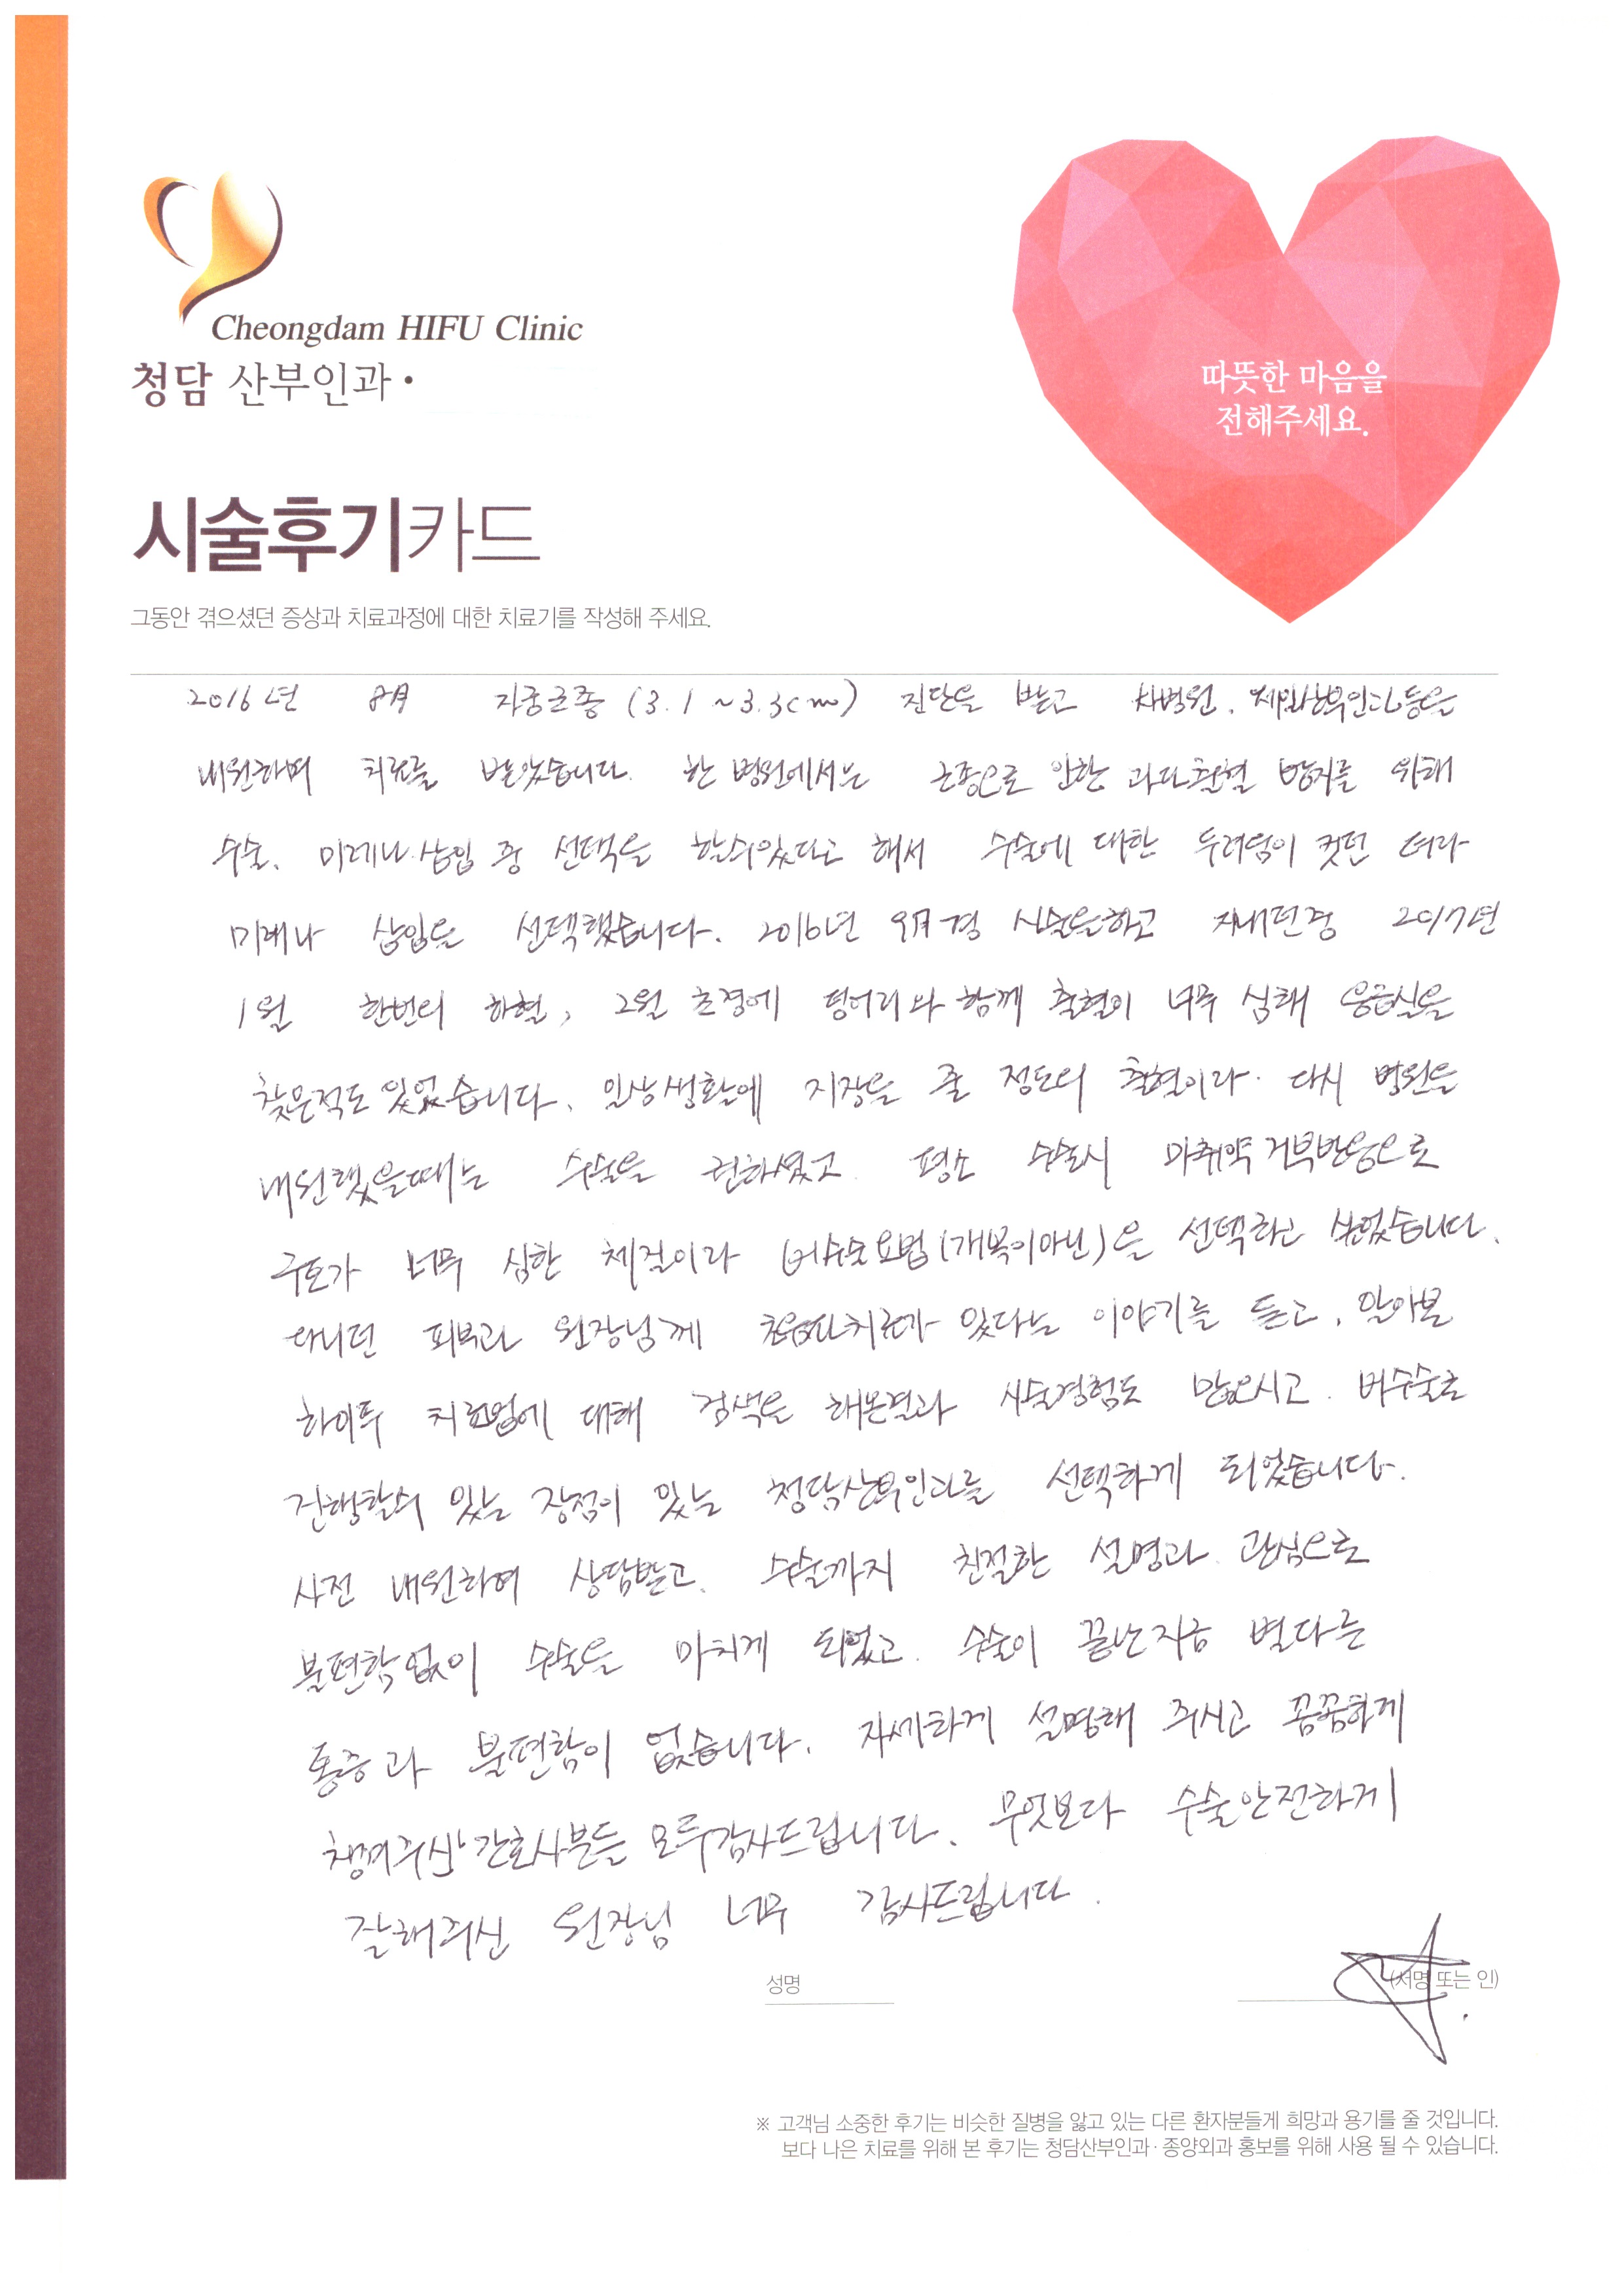 Cheongdam HIFU Clinic
청담 산부인과·
따뜻한 마음을
전해주세요.
시술후기카드
그동안 겪으셨던 증상과 치료과정에 대한 치료기를 작성해 주세요.
2016년 8月 자궁근종 (3.1 ~3.3cm) 진단을 받고 차병원, 제일산부인과등을
내원하며 치료를 받았습니다. 한 병원에서는 근종으로 인한 과다출혈 방지를 위해
수술, 미레나 삽입 중 선택을 할수있다고 해서 수술에 대한 두려움이 컷던 터라
미레나 삽입을 선택했습니다. 2016년 9月경 시술을하고 지내던중 2017년
1월 한번의 하혈, 2월 초경에 덩어리와 함께 출혈이 너무 심해 응급실을
찾은적도 있었습니다. 일상생활에 지장을 줄 정도의 출혈이라 다시 병원을
내원했을때는 수술을 권하였고 평소 수술시 마취약 거부반응으로
구토가 너무 심한 체질이라 비수술요법(개복이아닌)을 선택하고 싶었습니다.
다니던 피부과 원장님께 초음파치료가 있다는 이야기를 듣고, 알아본
하이푸 치료법에 대해 검색을 해본결과 시술경험도 많으시고 비수술로
진행할수 있는 장점이 있는 청담산부인과를 선택하게 되었습니다.
사전 내원하여 상담받고 수술까지 친절한 설명과 관심으로
불편함없이 수술을 마치게 되었고 수술이 끝난지금 별다른
통증과 불편함이 없습니다. 자세하게 설명해 주시고 꼼꼼하게
챙겨주신 간호사분들 모두감사드립니다. 무엇보다 수술안전하게
잘해주신 원장님 너무 감사드립니다.
성명 (서명 또는 인)
※ 고객님 소중한 후기는 비슷한 질병을 앓고 있는 다른 환자분들게 희망과 용기를 줄 것입니다.
보다 나은 치료를 위해 본 후기는 청담산부인과·종양외과 홍보를 위해 사용 될 수 있습니다.